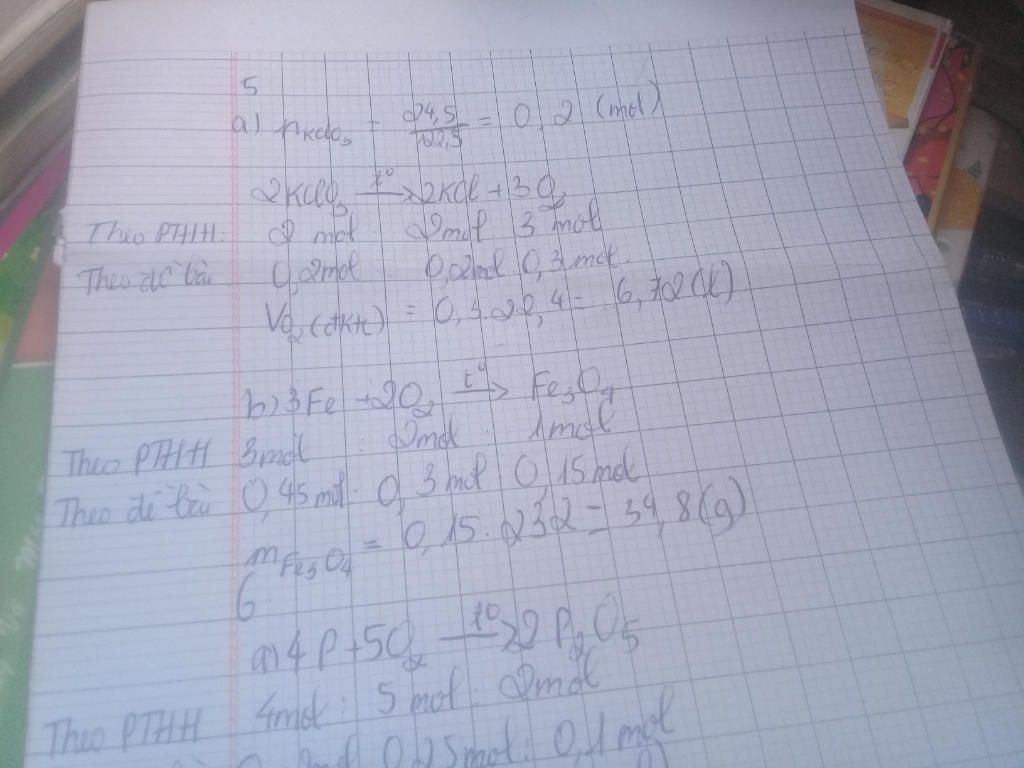 5
a) nKClO3 = 24,5/122,5 = 0,2 (mol)
2KClO3 t°→ 2KCl + 3O2
Theo PTHH: 2 mol : 2mol : 3 mol
Theo đề bài: 0,02mol : 0,02mol : 0,3mol
VO2(đktc) = 0,3.22,4 = 6,72(l)
b) 3Fe + 2O2 t°→ Fe3O4
Theo PTHH 3mol : 2mol : 1mol
Theo đề bài 0,45mol : 0,3mol : 0,15mol
mFe3O4 = 0,15.232 = 34,8(g)
6
a) 4P + 5O2 t°→ 2P2O5
Theo PTHH 4mol : 5mol : 2mol
0,25mol : 0,1mol